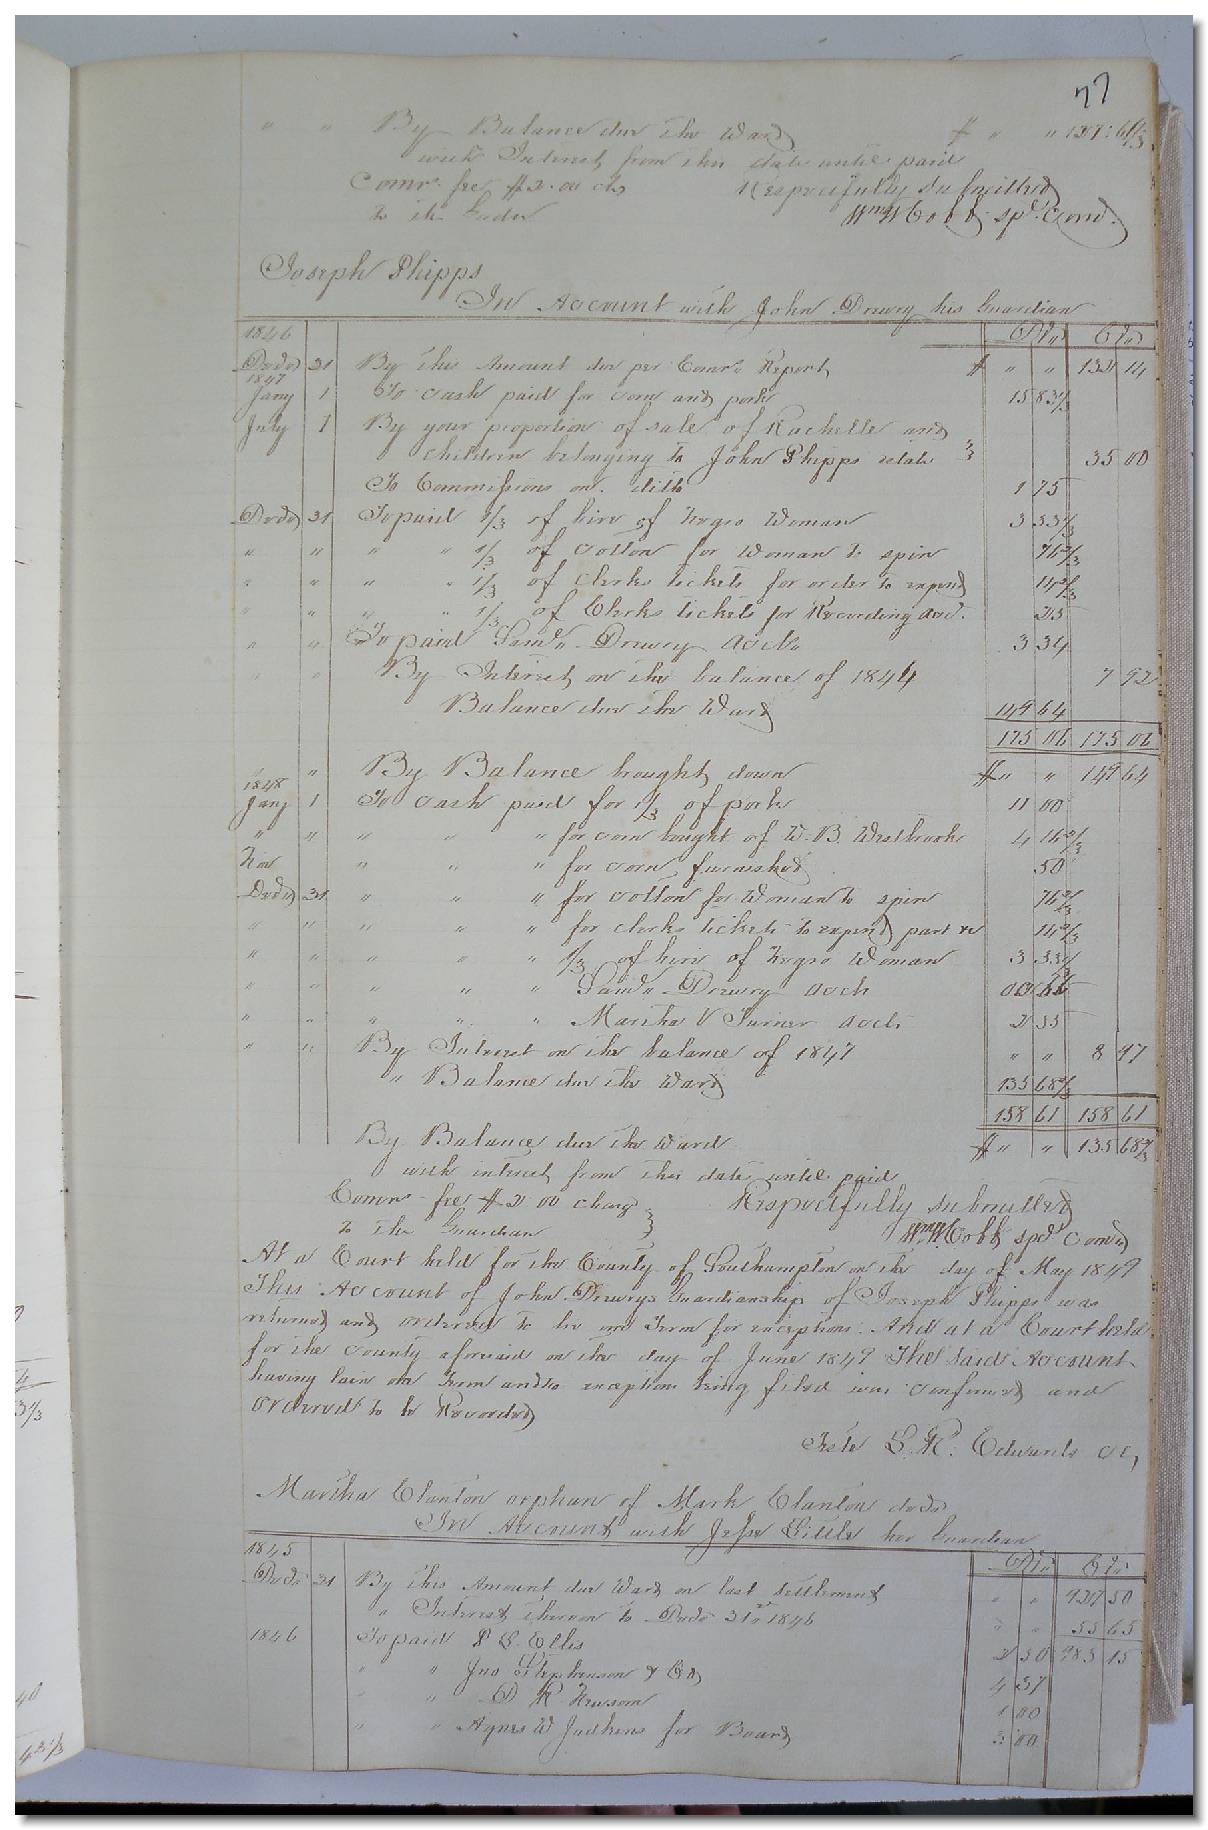 77
" " By Balance due the Ward $ " " 137:61 1/3
with Interest from this date until paid
Comrs. fee $2.00 chg Respectfully Submitted
to the Gudn Wm W Cobb spl. Comr.
Joseph Phipps
In Account with John Drewry his Guardian
1846 Drs Crs
Decr 31 By this Amount due per Comrs Report $ " " 132 14
1847
Jany 1 To cash paid for corn and pork 15 83 1/3
July 1 By your proportion of sale of Rachelle and
children belonging to John Phipps estate 35 00
To Commissions on ditto 1 75
Decr 31 To paid 1/3 of hire of Negro Woman 3 33 1/3
" " " " 1/3 of cotton for Woman to spin 76 2/3
" " " " 1/3 of clerks tickets for order to expend 14 2/3
" " " " 1/3 of Clerks tickets for Recording acct. 25
" " To paid Saml. Drewry acct. 3 34
" " By Interest on the balance of 1846 7 92
Balance due the Ward 149 64
175 06 175 06
" " By Balance brought down $ " " 149 64
1848
Jany 1 To cash paid for 1/3 of pork 11 00
" " " " " for corn bought of W. B. Westbrook 4 16 2/3
Nov " " " for corn furnished 50
Decr 31 " " " for cotton for Woman to spin 76 2/3
" " " " " for clerks tickets to expend part &c 14 2/3
" " " " " 1/3 of hire of Negro Woman 3 33 1/3
" " " " " Saml. Drewry acct 00 66
" " " " " Martha V Turner acct. 2 35
" " By Interest on the balance of 1847 " " 8 97
" Balance due the Ward 135 68 2/3
158 61 158 61
By Balance due the Ward $ " " 135 68 2/3
with interest from this date until paid
Comrs fee $2 00 charg Respectfully submitted
to the Guardian Wm W. Cobb spl comr
At a Court held for the County of Southampton on the day of May 1849
This Account of John Drewrys Guardianship of Joseph Phipps was
returned and ordered to lie one Term for exceptions. And at a Court held
for the county aforesaid on the day of June 1849 The said Account
having lain one Term and no exceptions being filed was confirmed and
ordered to be Recorded
Teste L. R. Edwards cc,
Martha Clanton orphan of Mark Clanton decd.
In Account with Jesse Little her Guardian
1845 Drs Crs
Decr 31 By this Amount due Ward on last settlement " " 927 50
" Interest thereon to Decr 31st 1846 " " 55 65
1846 To paid P L. Ellis 2 50 983 15
" " Jno Stephenson & Co, 4 37
" " D R Newsom 1 00
" " Agnes W Judkins for Board 3 00